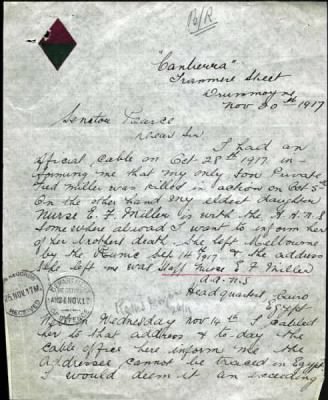 16/R
"Canberra"
Tranmere Street
Drummoyne
Nov 20th 1917
Senator Pearce
Dear Sir,
I had an
official cable on Oct 28th 1917 in-
forming me that my only son Private
Fred Miller was killed in action on Oct 5th
On the other hand my eldest daughter
Nurse E. F. Miller is with the A.A.N.S
Somewhere abroad I want to inform her
of her brothers death. She left Melbourne
by the Runic Sep 14 1917 & the address
she left me was Staff Nurse E F Miller
A.A.N.S
Headquarters Cairo
Egypt
on Wednesday Nov 14th I cabled
her to that address & to-day the
cable office here inform me the
addressee cannot be traced in Egypt
I would deem it an exceeding
25 NOV. 17
RECEIVED